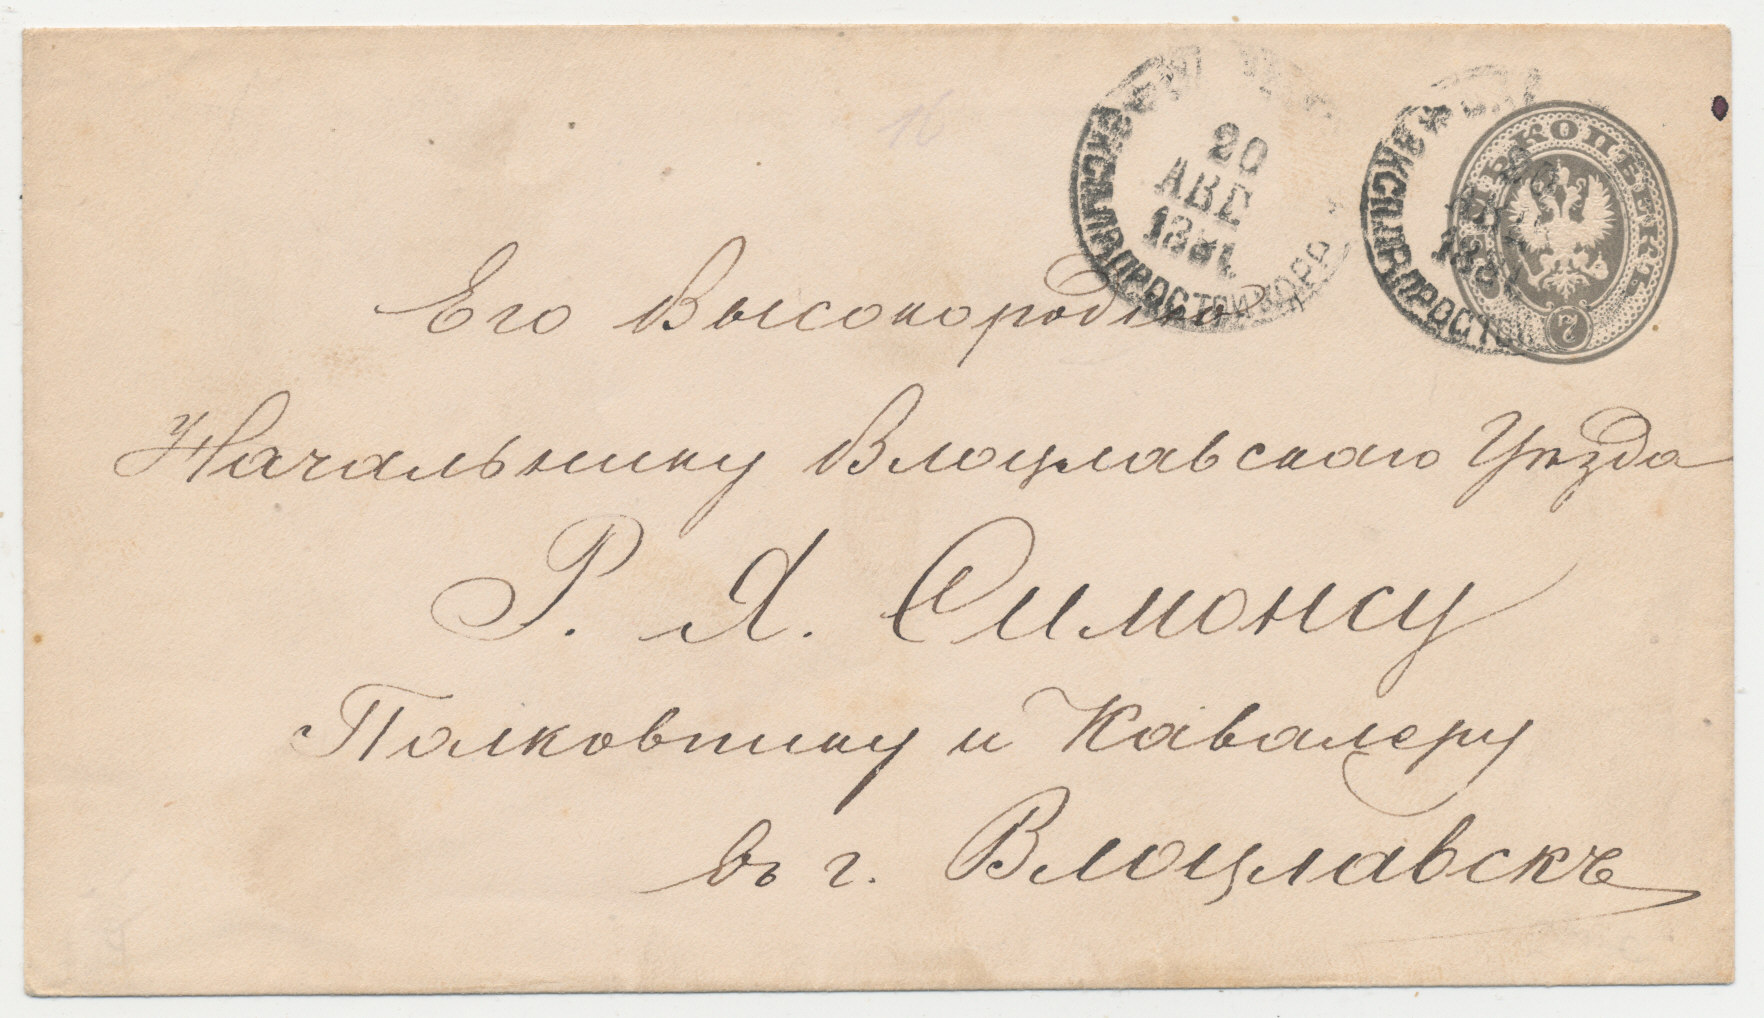 20
АВГ
1881
ЭКСПЕД. ПРОСТОЙ КОРР.
20
АВГ
1881
ЭКСПЕД. ПРОСТОЙ
КОПѢЕКЪ
7
Его Высокородію
Начальнику Влоцлавскаго Уѣзда
Р. Я. Симонсу
Полковнику и Кавалеру
въ г. Влоцлавскѣ